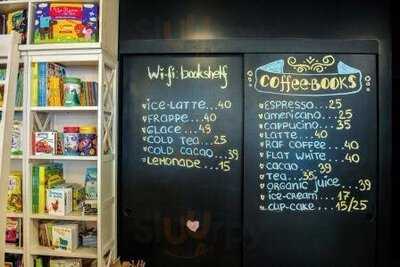 Wi-fi: bookshelf
ICE-LATTE...40
FRAPPE...40
GLACE...45
COLD TEA...25
COLD CACAO...39
LEMONADE...15
COFFEE&BOOKS
ESPRESSO...25
americano...25
cappuccino...35
LATTE..40
RAF COFFEE...40
FLAT WHITE...40
cacao...39
Tea...35
ORGANIC JUICE...39
ICE-CREAM...17
CUP-CAKE...15/25